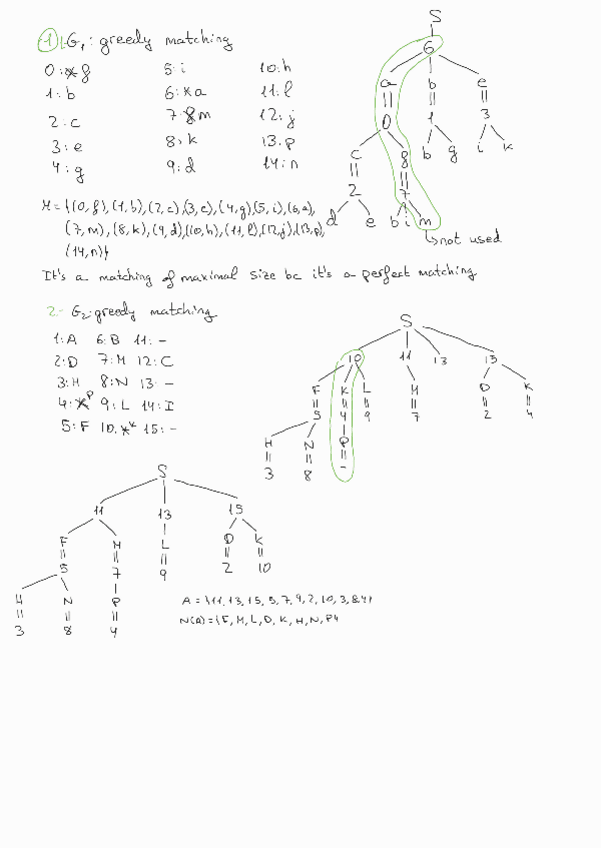 1 G₁: greedy matching
0: g 5: i 10: h
1: b 6: a 11: l
2: c 7: m 12: j
3: e 8: k 13: p
4: g 9: d 14: n
S
6
a b e
0 1 3
c 8 b g i k
2 7
d e b i m
not used
M = {(0, g), (1, b), (2, c), (3, e), (4, g), (5, i), (6, a),
(7, m), (8, k), (9, d), (10, h), (11, l), (12, j), (13, p),
(14, n)}
It's a matching of maximal size bc it's a perfect matching
2.- G₂: greedy matching
1: A 6: B 11: -
2: D 7: M 12: C
3: H 8: N 13: -
4: P 9: L 14: I
5: F 10: K 15: -
S
10 11 13 15
F K L M D K
5 4 9 7 2 4
H N P
3 8 -
S
11 13 15
F M L D K
5 7 9 2 10
H N P
3 8 4
A = {11, 13, 15, 5, 7, 9, 2, 10, 3, 8, 4}
N(A) = {F, M, L, D, K, H, N, P}